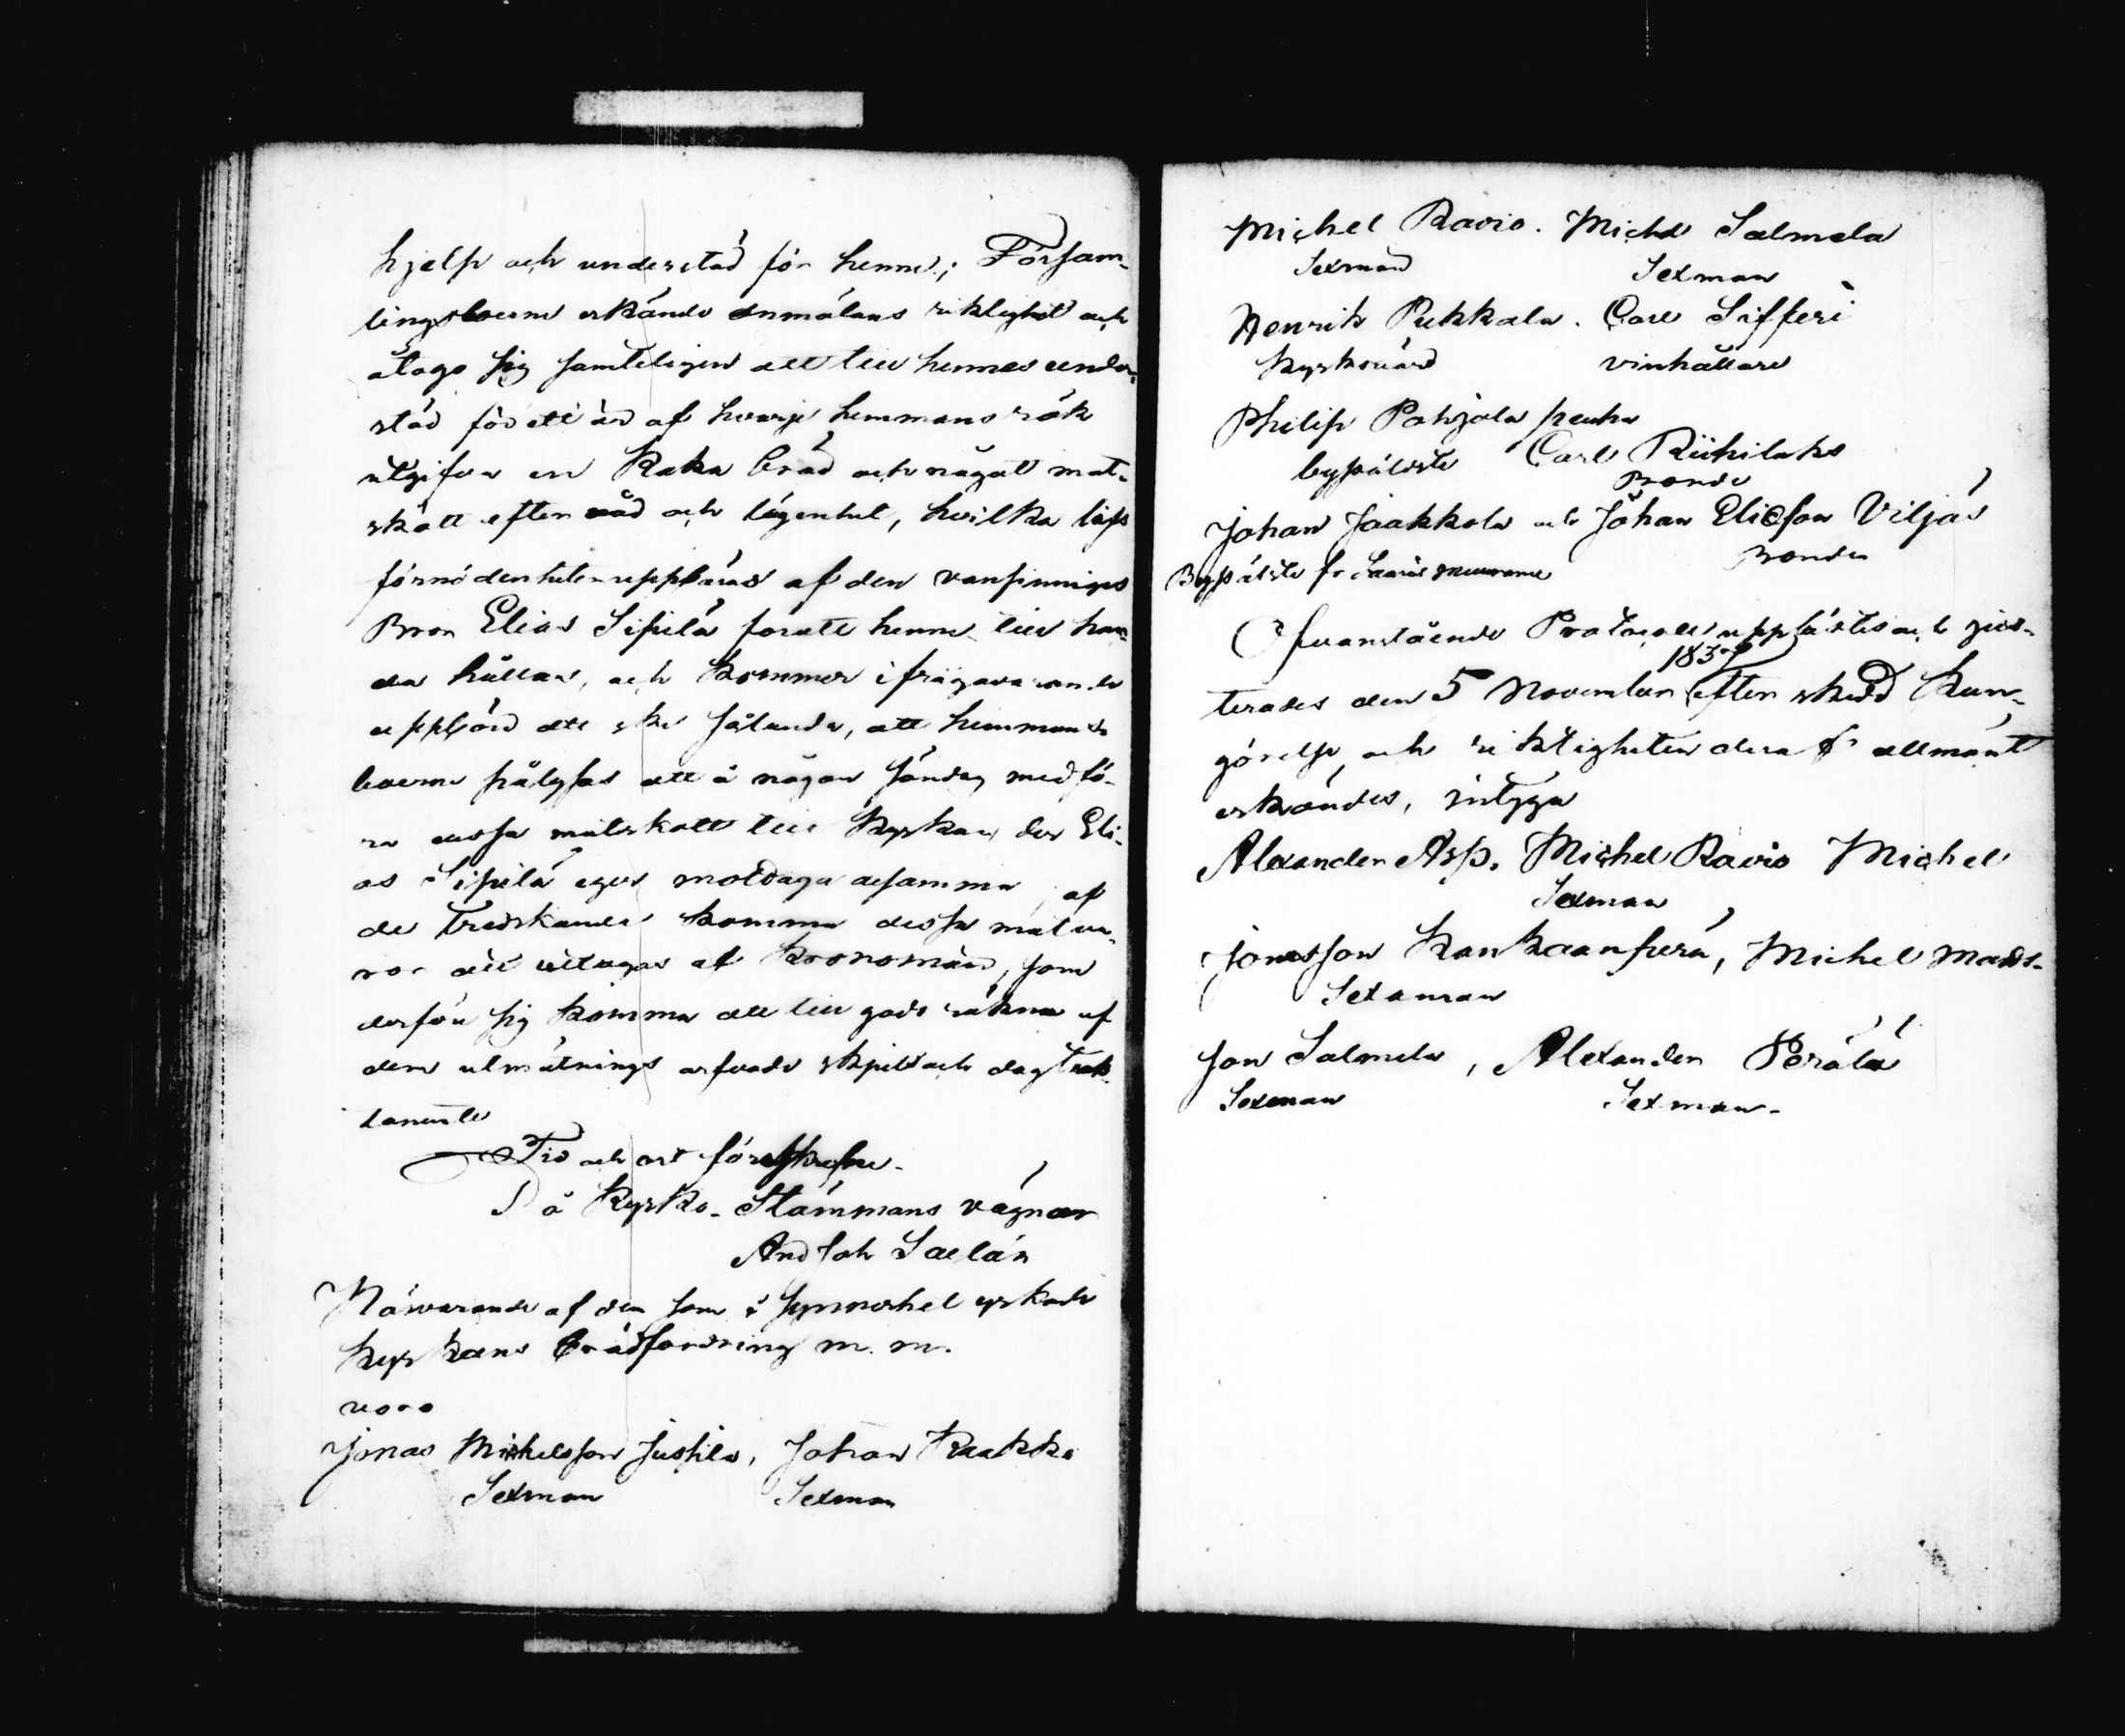 hjelp och understöd för henne; Försam-
lingsboerne erkände anmälans riktighet och
åtogo sig samteligen att till hennes under-
stöd för ett år af hvarje hemmans rök
utgifva en Kaka bröd och något mat-
skatt efter råd och lägenhet, hvilka lifs
förnödenheter uppbäras af den vansinniges
Bror Elias Sipilä foratt henne till han-
da hållas, och kommer ifrågavarande
uppbörd att ske sålunda, att hemmans
boerne pålysas att å någon söndag medfö-
ra dessa matskatt till Kyrkan der Eli-
as Sipilä eger mottaga desamma, af
de Tredskande komma dessa matva-
ror att uttagas af Kronomän, som
derför sig komma att till godo räkna af
dem utmätnings arfvode skjuts och dagtrak-
tamente
Tid och ort förrskrefne.
På Kyrko-Stämmans vägnar
And Joh Saelán
Närvarande af dem som å synnerhet yrkade
Kyrkans brädfordring m. m.
voro
Jonas Michelsson Jussila, Johan Kaakko
Sexman Sexman
Michel Ravio. Michel Salmela
Sexman Sexman
Henrik Pukkala. Carl Sifferi
Kyrkovärd vinhållare
Philip Pohjola
byßälste Carl Riihilaks
Bonde
Johan Jaakkola och Johan Elicson Viljás
Byßälste fr Bonde
Ofvanstående Protocoll upplästes och jus-
terades den 5 November 1837 efter skedd kun-
görelse, och riktigheten deraf allmänt
erkändes, intyga
Alexander Asp. Michel Ravio Michel
Sexman
Jonasson Kankaanperä, Michel Mads-
Sexman
son Salmela, Alexander Perälä
Sexman Sexman-